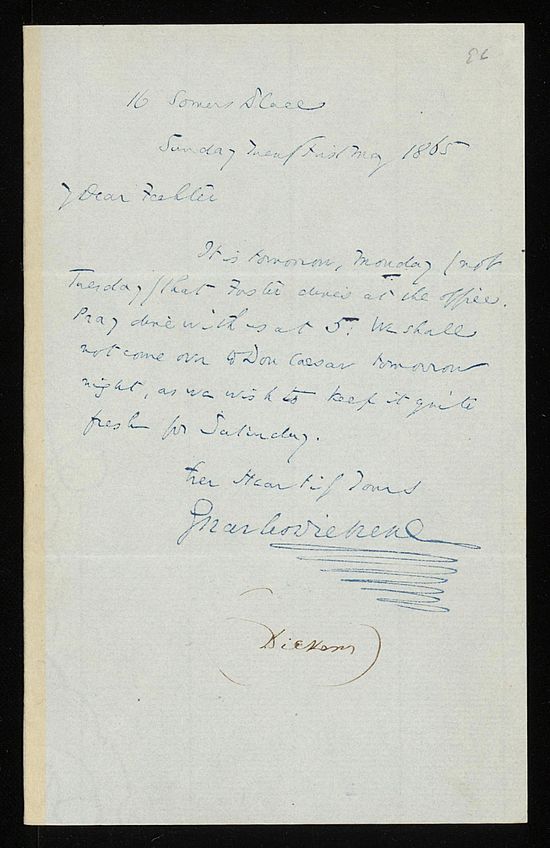 86
16 Somers Place
Sunday Twenty First May 1865
My Dear Fechter
It is tomorrow, Monday (not
Tuesday) that Forster dines at the office.
Pray dine with us at 5. We shall
not come on to Don Caesar tomorrow
night, as we wish to keep it quite
fresh for Saturday.
Ever Heartily Yours
Charles Dickens
(Dickens)